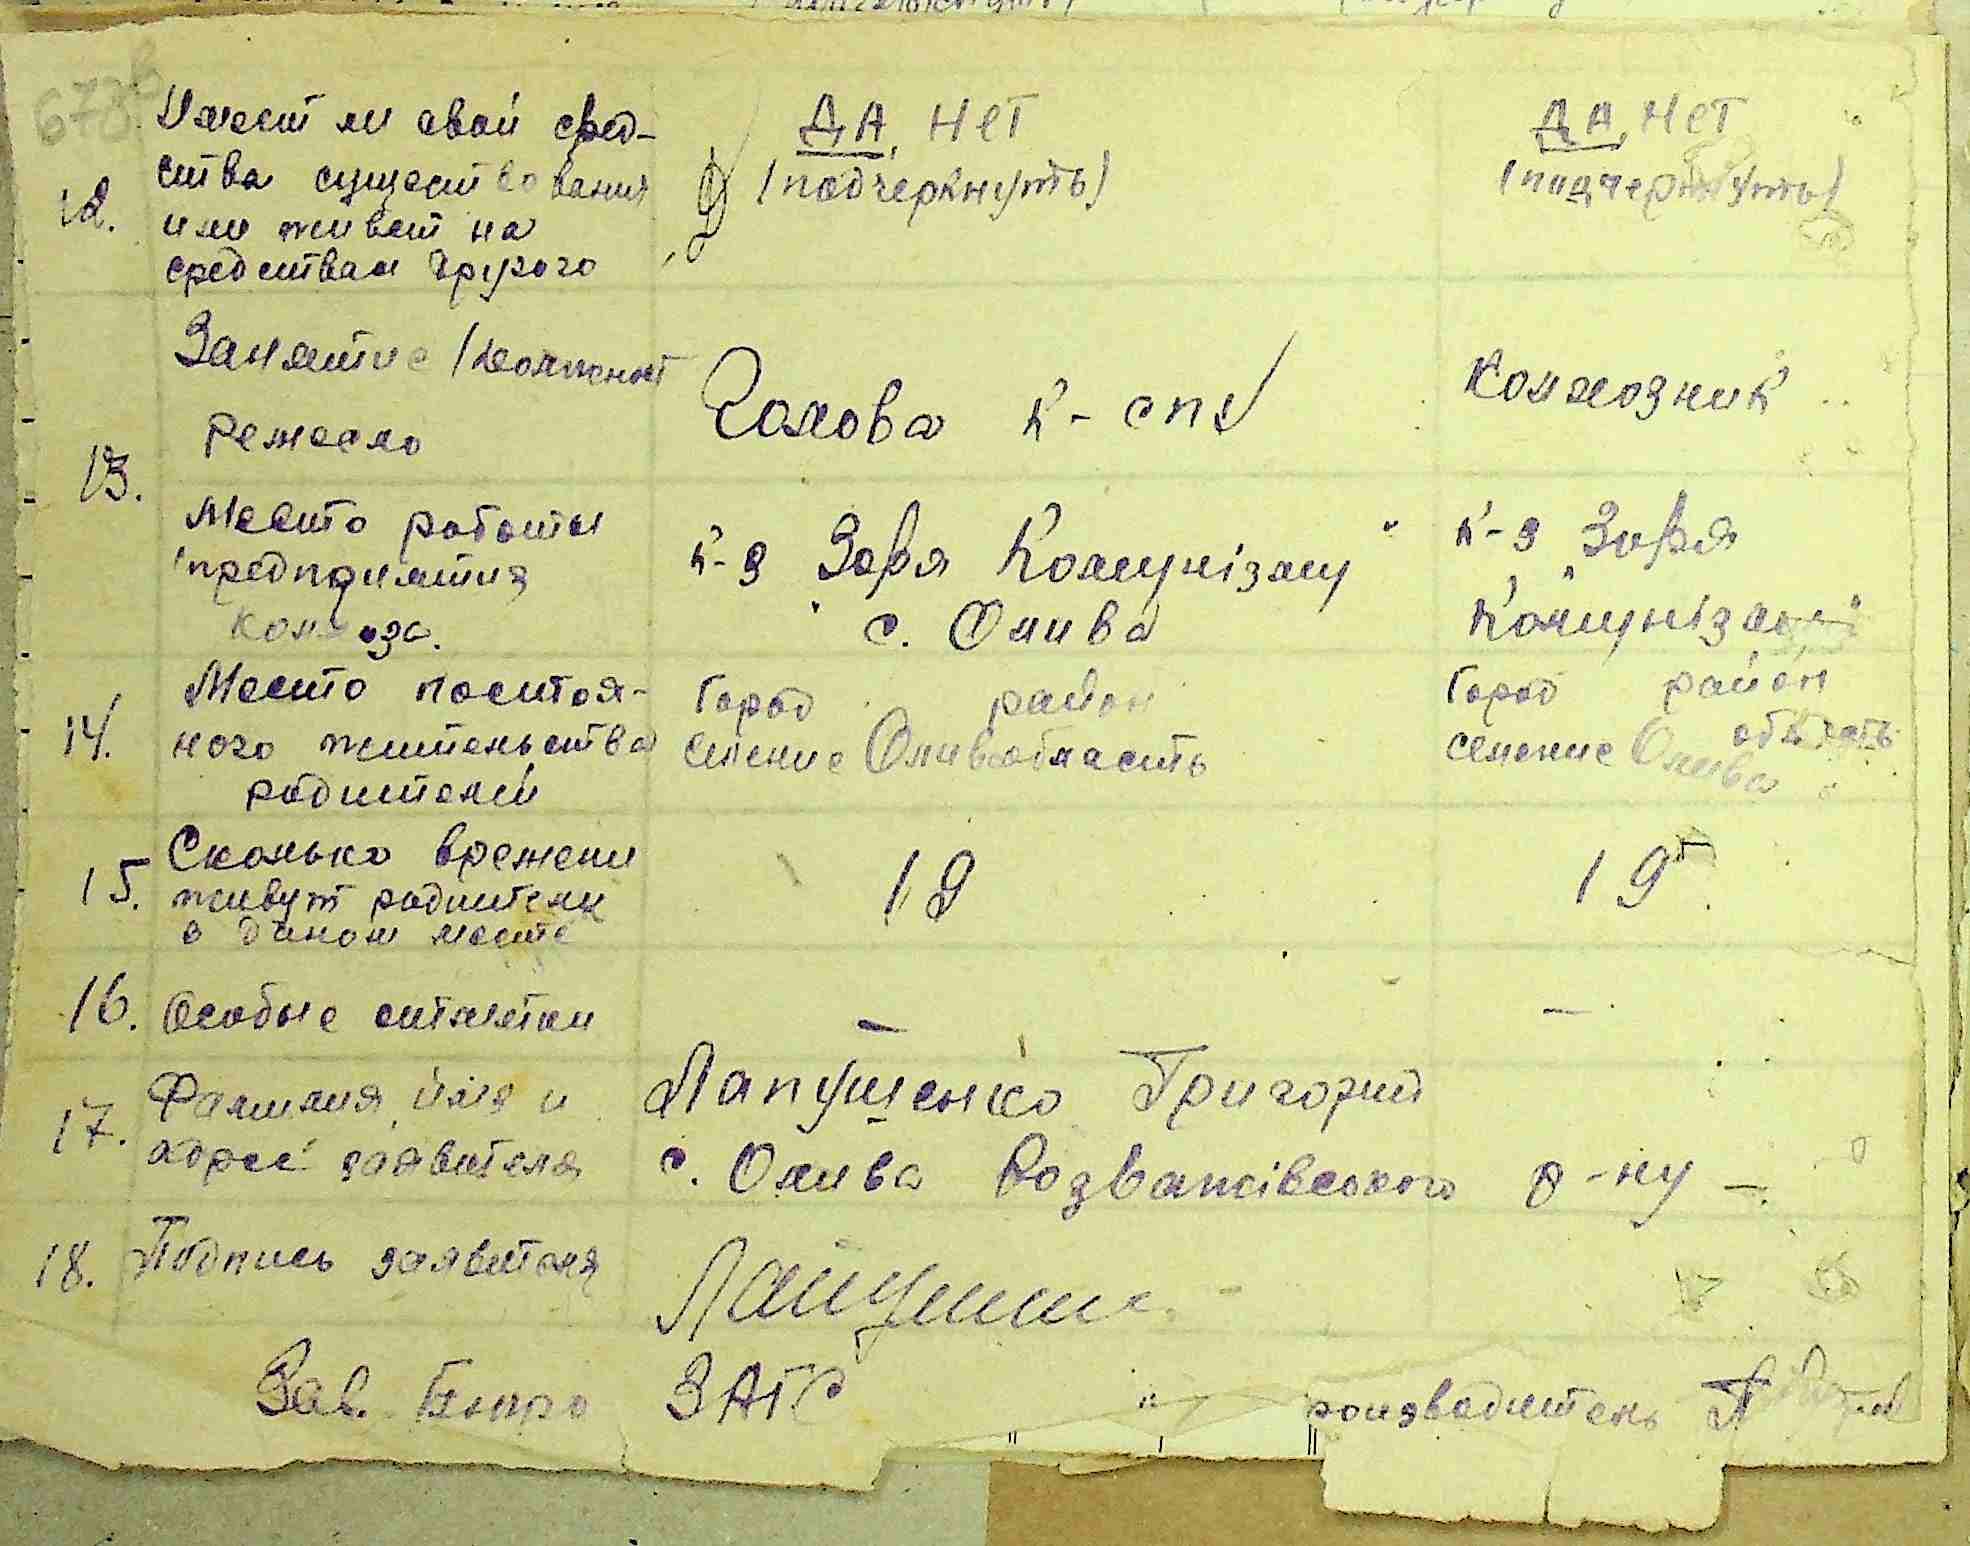 678
12.
Имеет ли свои сред-
ства существования
или живет на
средствам другого
ДА, НЕТ
(подчеркнуть)
ДА, НЕТ
(подчеркнуть)
13.
Занятие (должност
Ремесло
Голова к-спу
Колхозник
Место работы
предприятия
колхоза.
к-з Зоря Комунізму"
с. Олива
к-з "Зоря
Комунізму"
14.
Место постоя-
ного жительства
родителей
Город район
селение Олива область
Город район
селение Олива область
15.
Сколько времени
живут родители
в даном месте
19
19
16. Особые отметки
—
—
17.
Фамилия, имя и
адрес заявителя
Лапушенко Григорий
с. Олива Розважівського р-ну —
18. Подпись заявителя
Зав. Бюро ЗАГС
роизводитель